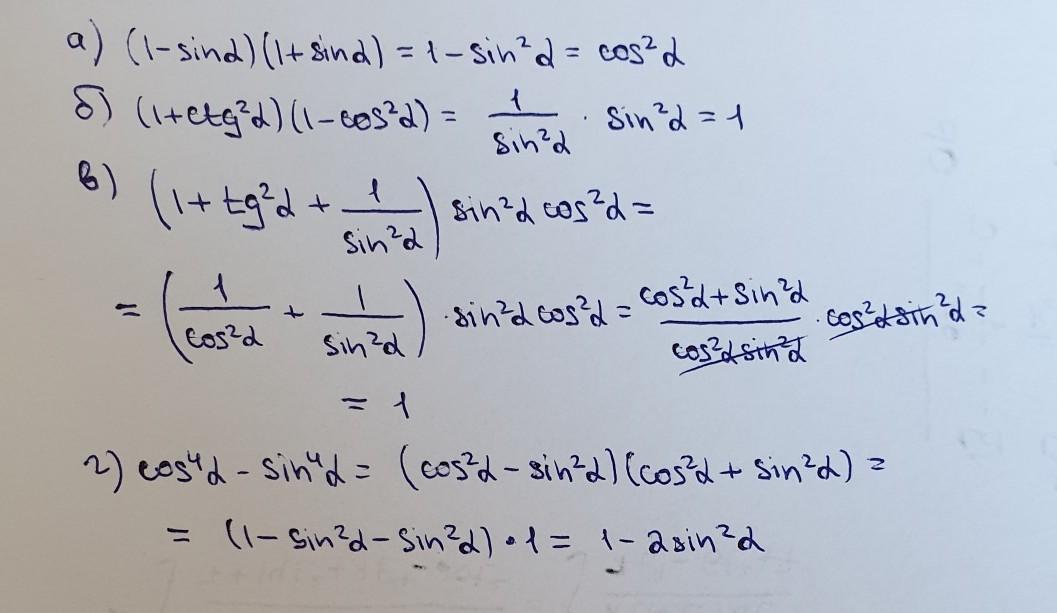 а) (1-sinα)(1+sinα) = 1-sin²α = cos²α
б) (1+ctg²α)(1-cos²α) = 1/sin²α · sin²α = 1
в) (1+tg²α + 1/sin²α) sin²α cos²α =
= (1/cos²α + 1/sin²α) · sin²α cos²α = (cos²α+sin²α)/(cos²α sin²α) · cos²α sin²α =
= 1
г) cos⁴α - sin⁴α = (cos²α - sin²α)(cos²α + sin²α) =
= (1- sin²α - sin²α) · 1 = 1-2sin²α